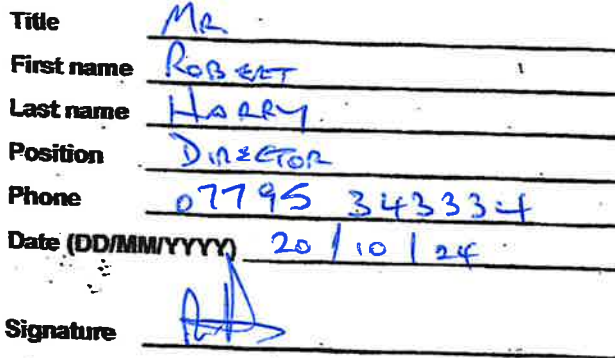 Title MR
First name ROBERT
Last name HARRY
Position DIRECTOR
Phone 07795 343334
Date (DD/MM/YYYY) 20/10/24
Signature